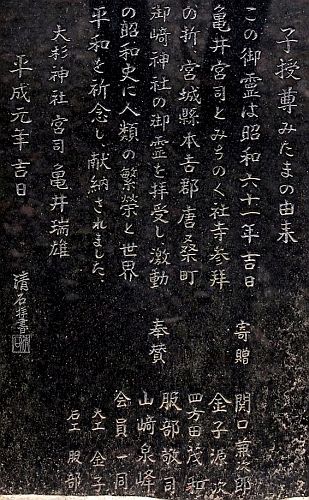 子授尊みたまの由来
この御霊は昭和六十一年吉日
亀井宮司とみちのく社寺参拜
の折、宮城縣本吉郡唐桑町
御崎神社の御霊を拝受し激動
の昭和史に人類の繁榮と世界
平和を祈念し、献納されました、
大杉神社宮司 亀井瑞雄
平成元年吉日
清石拝書
寄贈 関口 次郎
金子源次
四方田茂和
奉賛 服部敬司
山﨑泉峰
会員一同
大工 金子
石工 服部